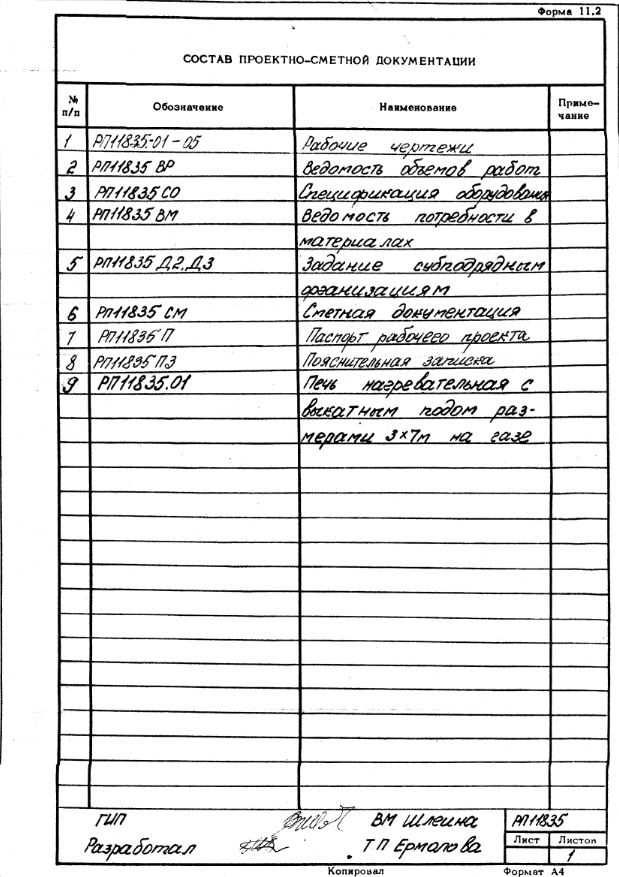 Форма 11.2
СОСТАВ ПРОЕКТНО-СМЕТНОЙ ДОКУМЕНТАЦИИ
№ п/п Обозначение Наименование Приме-
чание
1 РП11835-01-05 Рабочие чертежи
2 РП11835 ВР Ведомость объемов работ
3 РП11835 СО Спецификация оборудования
4 РП11835 ВМ Ведомость потребности в
материалах
5 РП11835 Д2, Д3 Задание субподрядным
организациям
6 РП11835 СМ Сметная документация
7 РП11835 П Паспорт рабочего проекта
8 РП11835 ПЗ Пояснительная записка
9 РП11835.01 Печь нагревательная с
выкатным подом раз-
мерами 3×7м на газе
ГИП ВМ Шлеина РП11835
Лист Листов
Разработал ТП Ермолова 1
Копировал Формат А4